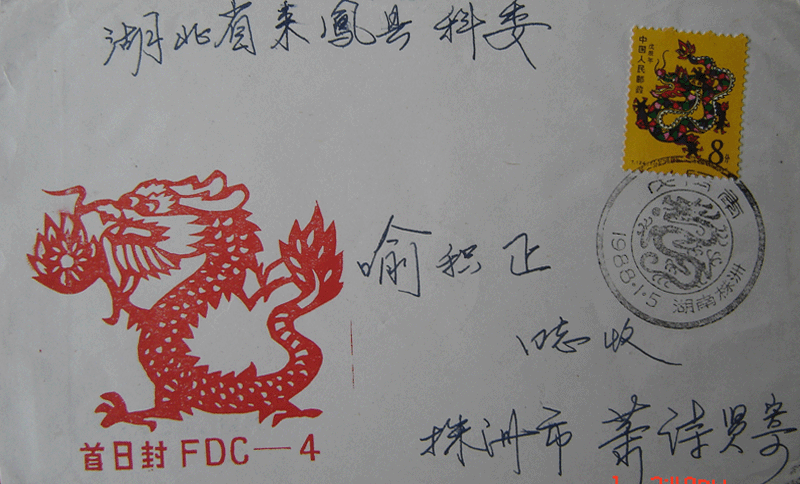 湖北省来凤县科委
中国人民邮政
戊辰年
8分
1988·1·5 湖南株洲
喻积正
同志收
株洲市 萧诗贤寄
首日封 FDC—4